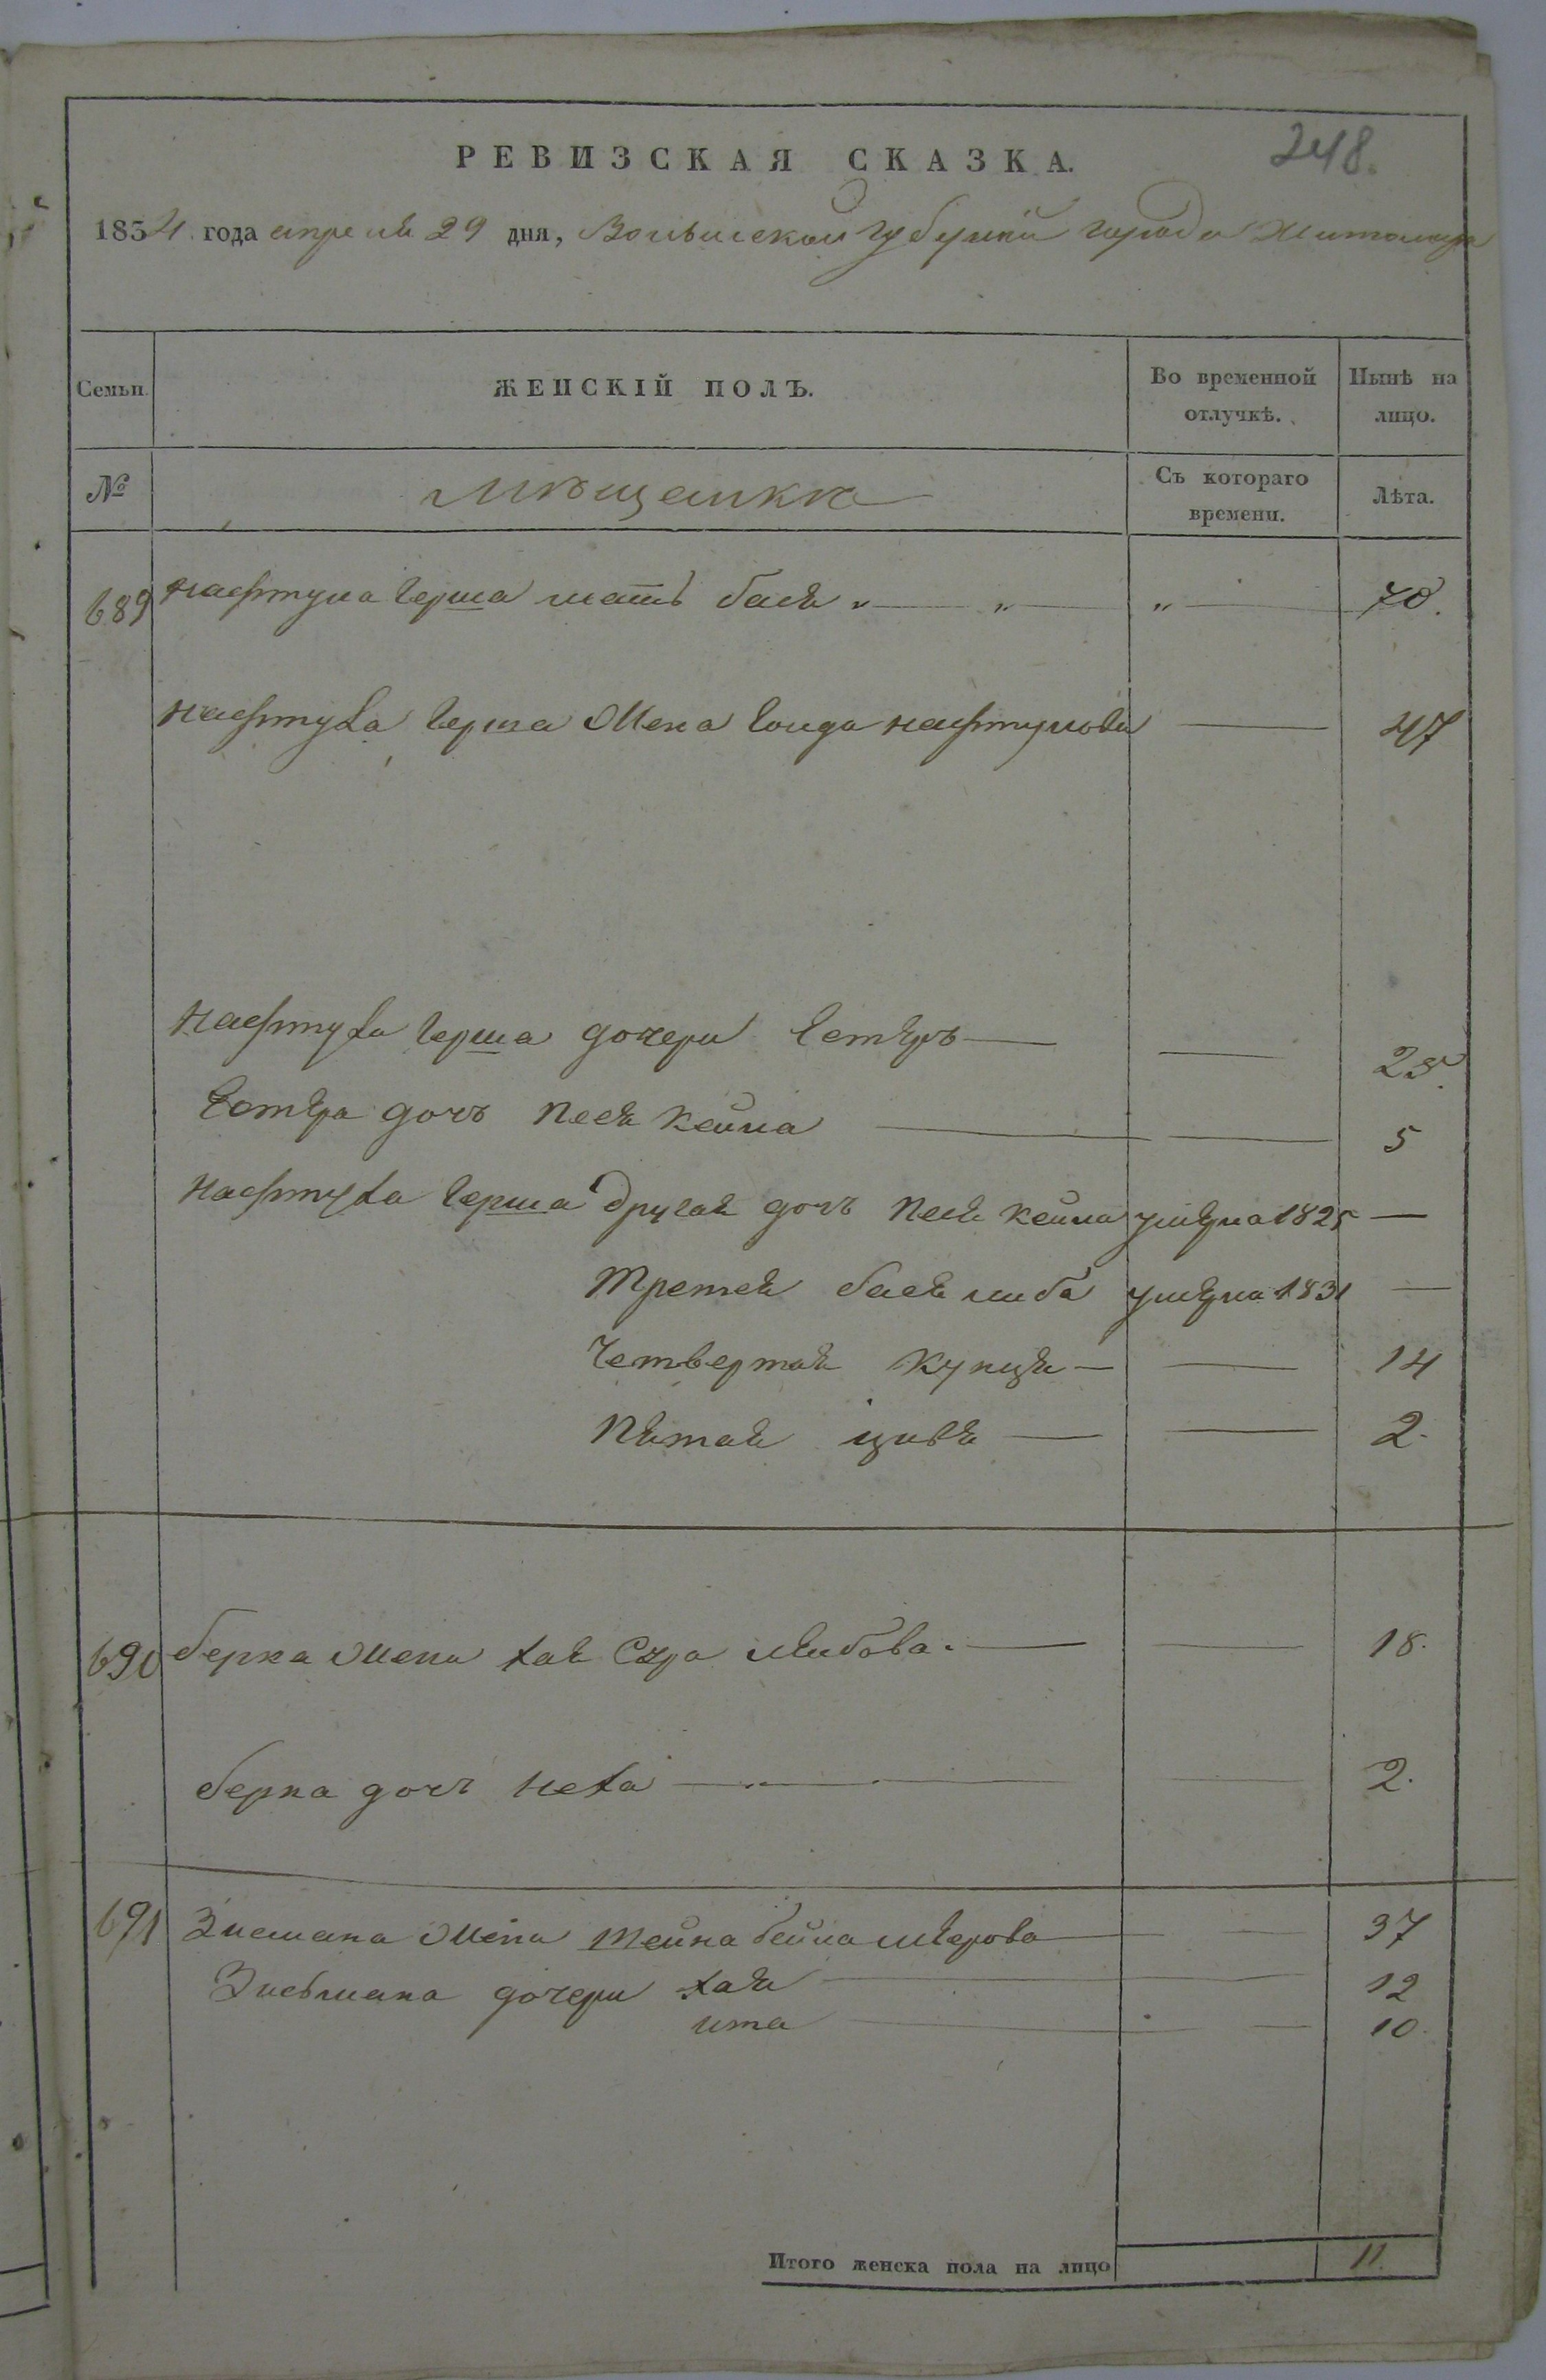 248.
РЕВИЗСКАЯ СКАЗКА.
1834 года апреля 29 дня, Волынской губерній города Житомира
Семьи. ЖЕНСКІЙ ПОЛЪ. Во временной отлучкѣ. Нынѣ на лицо.
№ Мѣщанкѣ Съ котораго времени. Лѣта.
689 Нафтула Герша мать бася „ — „ — „ — 70.
Нафтула Герша Жена Голда нафтулова — 47
Нафтула Герша дочери Естеръ — — 25.
Естера дочъ Песя Кейла — — 5
Нафтула Герша другая дочъ Песя Кейла умерла 1825 —
Третея бася либа умерла 1831 —
Четвертая — — 14
Пятая цивя — — 2.
690 берка Жена хая Сура лейбова. — — 18.
берка дочъ неха — — 2.
691 Зисмана Жена Шейна бейла меерова — — 37
Зисьмана дочери хая — — 12
ита — — 10.
Итого женска пола на лицо 11.